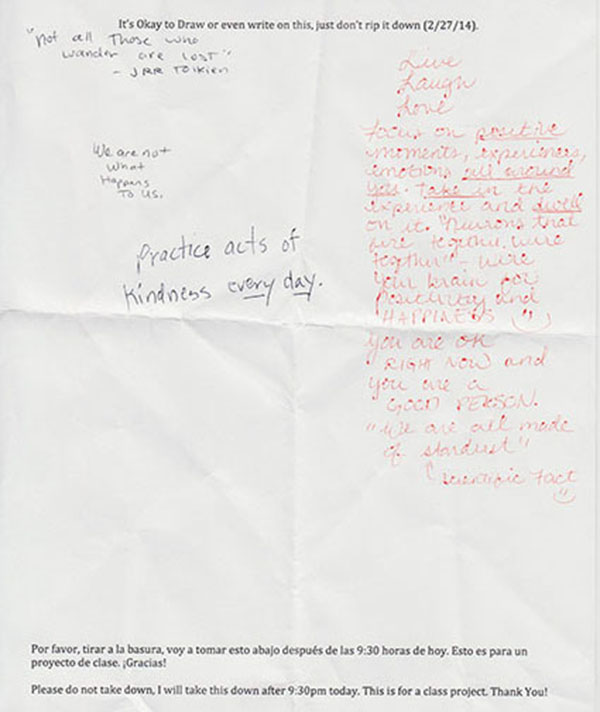 It's Okay to Draw or even write on this, just don't rip it down (2/27/14).
"Not all Those who
wander are lost"
- JRR Tolkien
We are not
what
Happens
To us.
Practice acts of
kindness every day.
Live
Laugh
Love
Focus on positive
moments, experiences,
emotions all around
you. Take in the
experience and dwell
on it. "Neurons that
fire together, wire
together" - wire
your brain for
positivity and
HAPPINESS
you are OK
RIGHT NOW and
you are a
GOOD PERSON.
"We are all made
of stardust"
scientific fact
Por favor, tirar a la basura, voy a tomar esto abajo después de las 9:30 horas de hoy. Esto es para un
proyecto de clase. ¡Gracias!
Please do not take down, I will take this down after 9:30pm today. This is for a class project. Thank You!